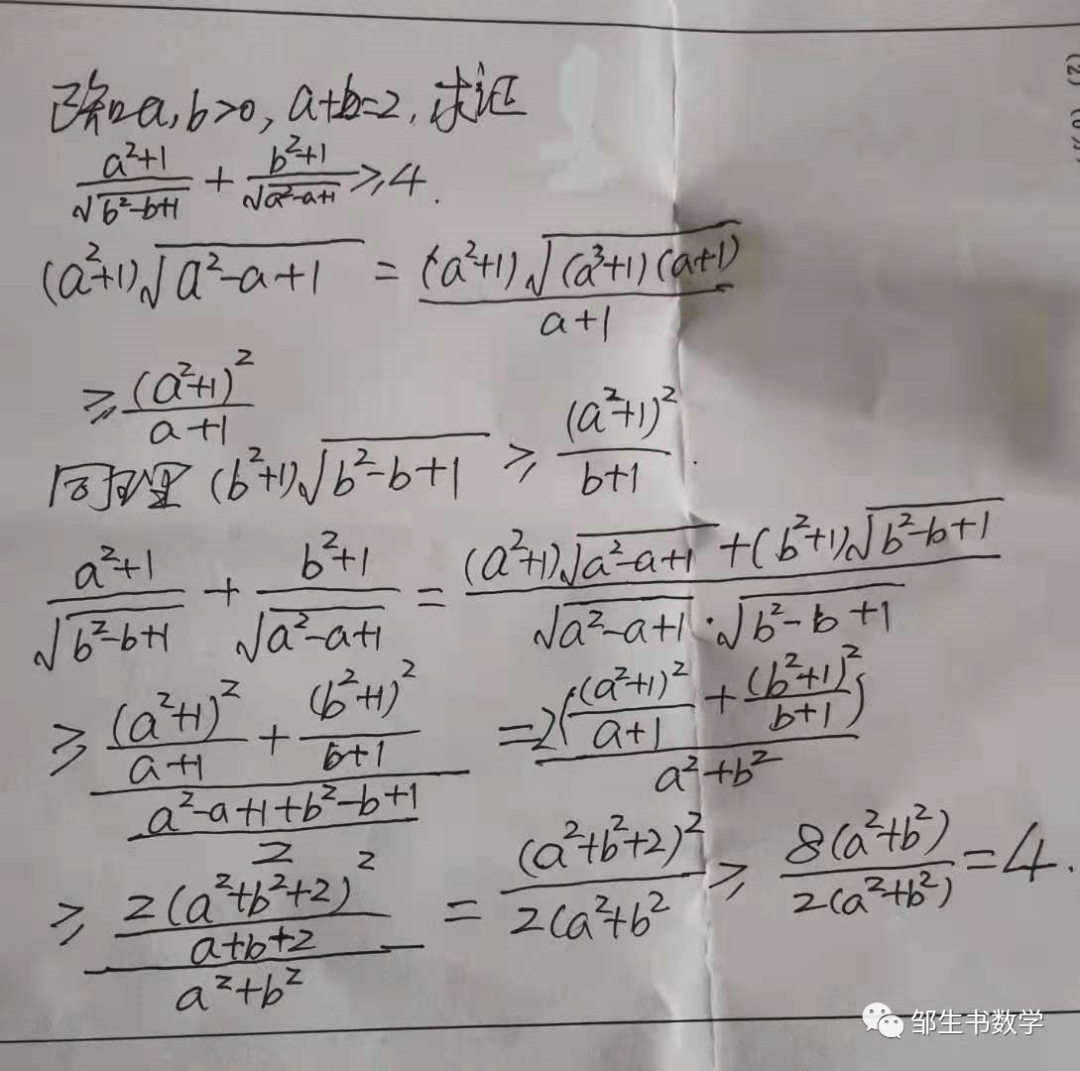 已知a,b>0, a+b=2, 求证
\frac{a^2+1}{\sqrt{b^2-b+1}} + \frac{b^2+1}{\sqrt{a^2-a+1}} ≥ 4.
(a^2+1)\sqrt{a^2-a+1} = \frac{(a^2+1)\sqrt{(a^3+1)(a+1)}}{a+1}
≥ \frac{(a^2+1)^2}{a+1}
同理 (b^2+1)\sqrt{b^2-b+1} ≥ \frac{(a^2+1)^2}{b+1}.
\frac{a^2+1}{\sqrt{b^2-b+1}} + \frac{b^2+1}{\sqrt{a^2-a+1}} = \frac{(a^2+1)\sqrt{a^2-a+1}+(b^2+1)\sqrt{b^2-b+1}}{\sqrt{a^2-a+1}·\sqrt{b^2-b+1}}
≥ \frac{\frac{(a^2+1)^2}{a+1} + \frac{(b^2+1)^2}{b+1}}{\frac{a^2-a+1+b^2-b+1}{2}} = \frac{2(\frac{(a^2+1)^2}{a+1} + \frac{(b^2+1)^2}{b+1})}{a^2+b^2}
≥ \frac{\frac{2(a^2+b^2+2)^2}{a+b+2}}{a^2+b^2} = \frac{(a^2+b^2+2)^2}{2(a^2+b^2} ≥ \frac{8(a^2+b^2)}{2(a^2+b^2)} = 4.
邹生书数学